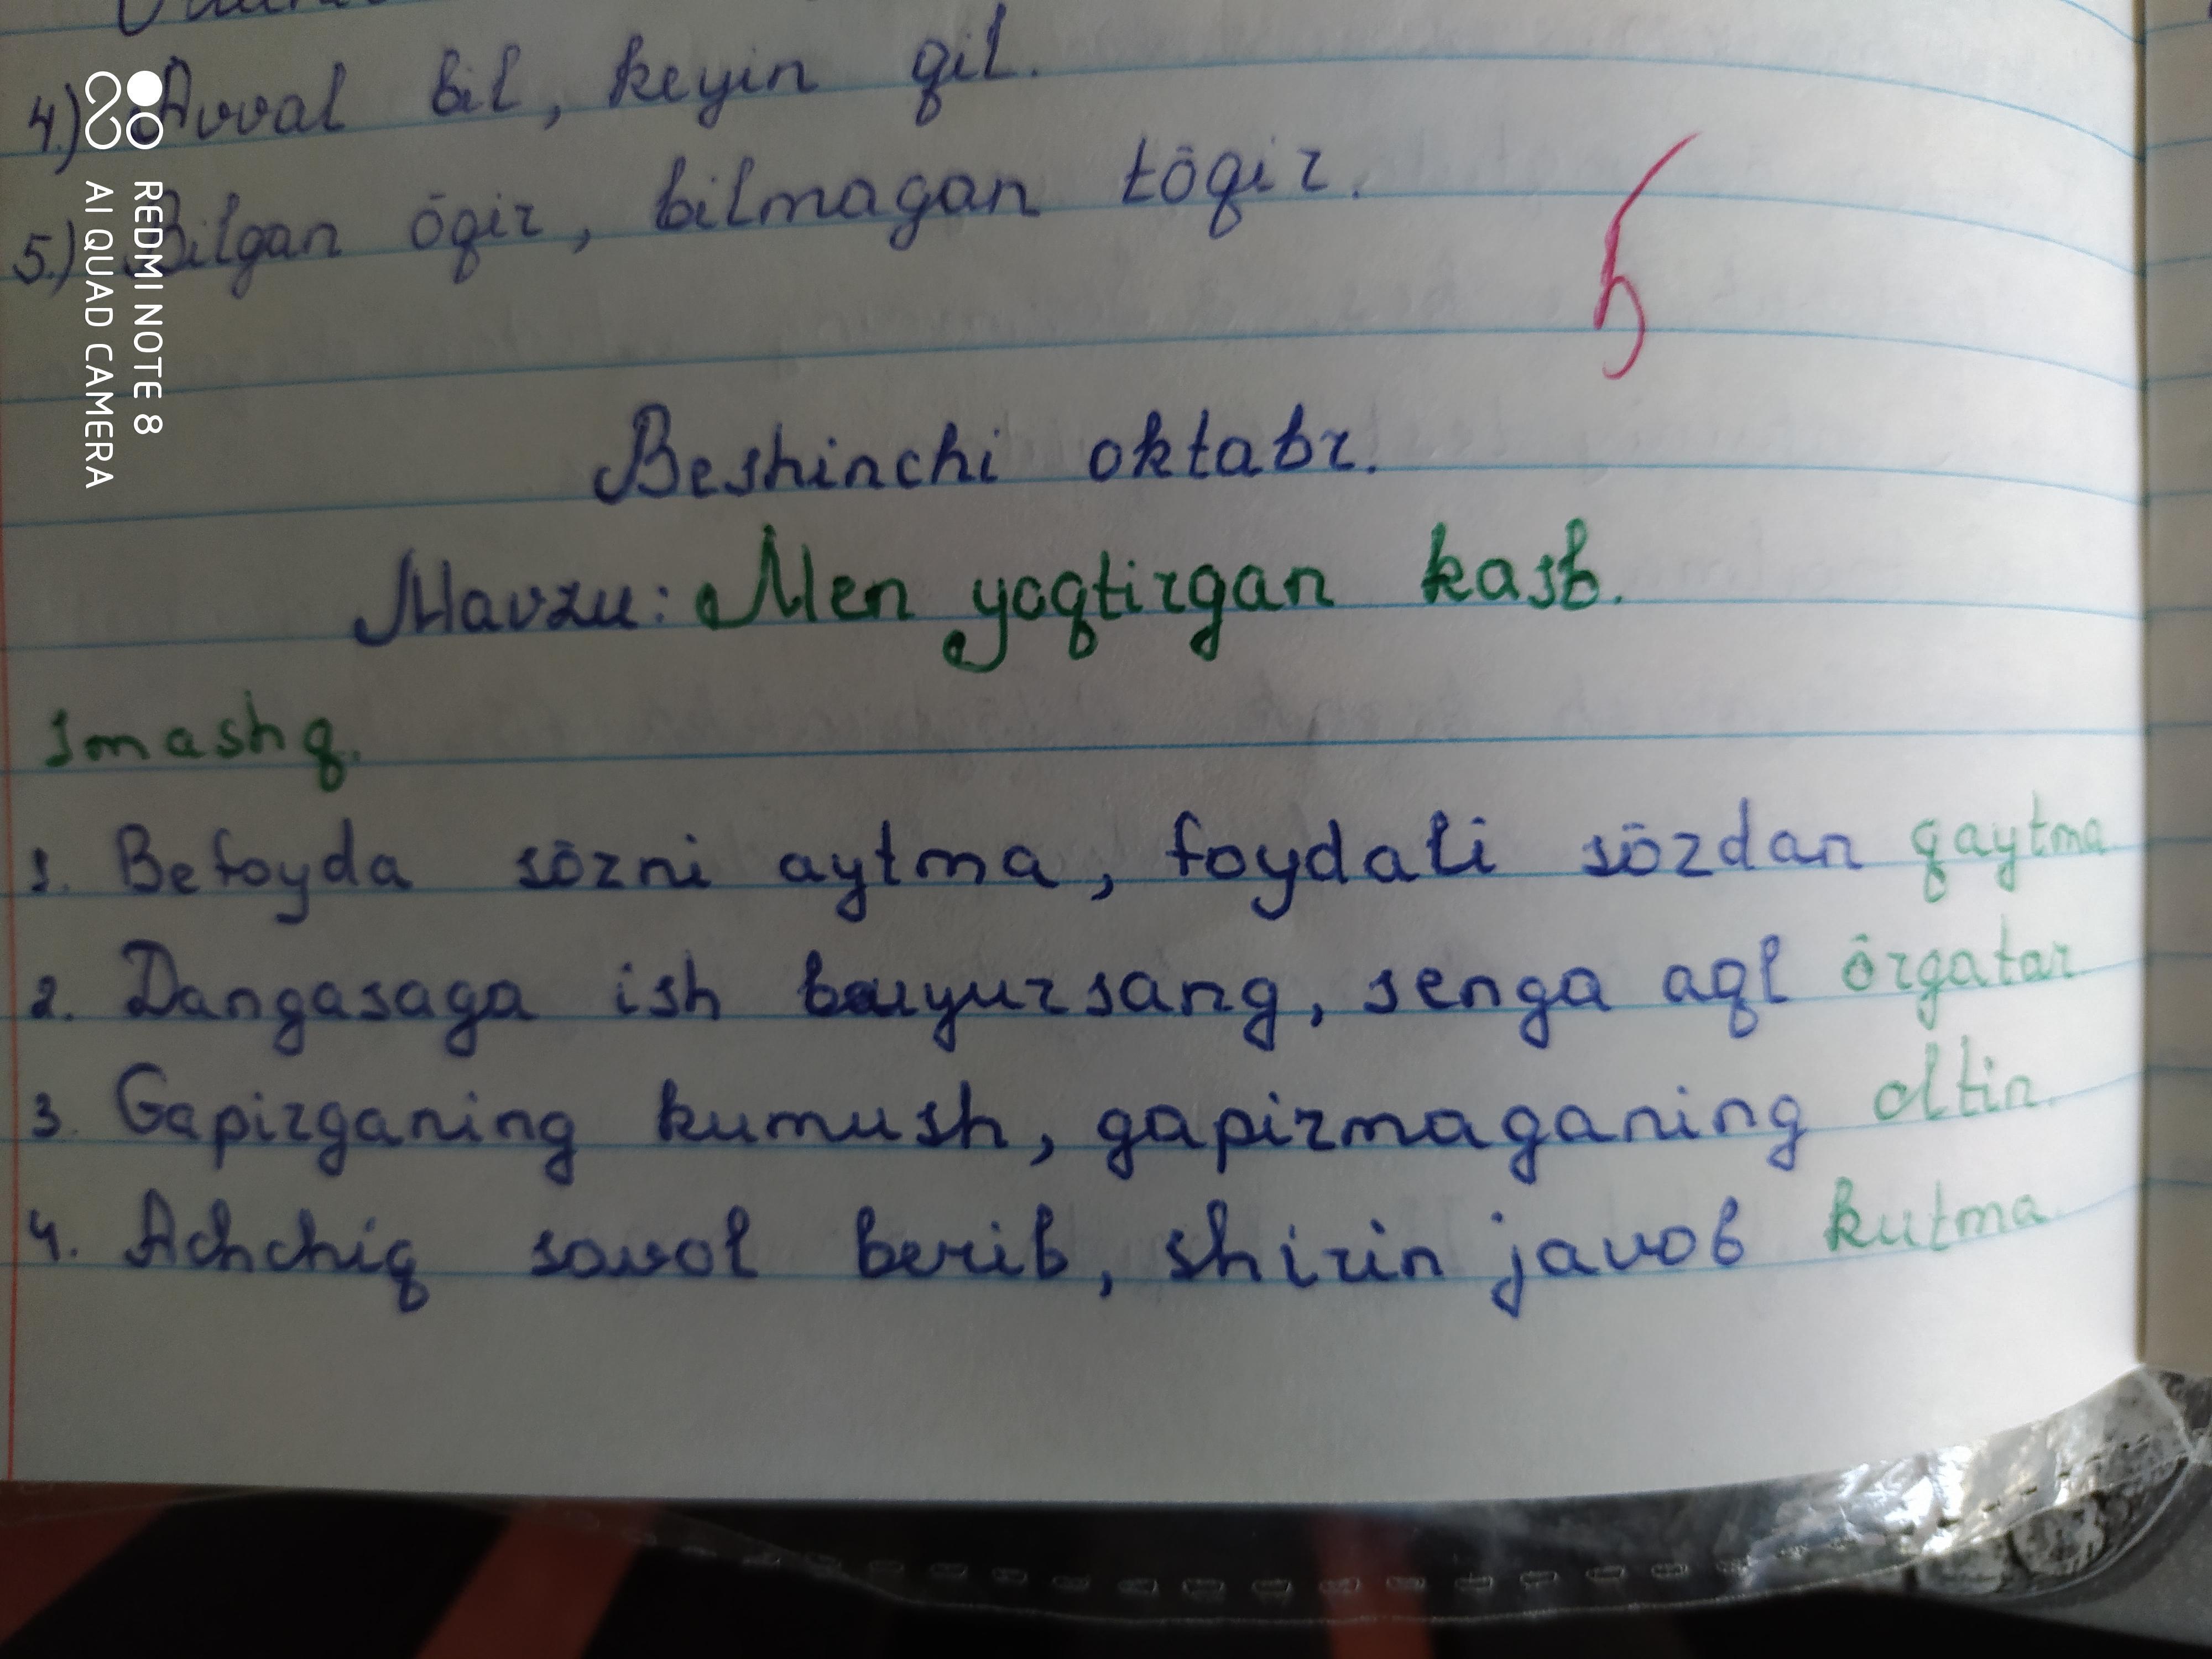 4.) Avval bil, keyin qil.
5.) Bilgan ōqir, bilmagan tōqir.
5
Beshinchi oktabr.
Mavzu: Men yoqtirgan kasb.
1mashq.
1. Befoyda sōzni aytma, foydali sōzdan qaytma
2. Dangasaga ish buyursang, senga aql ōrgatar
3. Gapirganing kumush, gapirmaganing oltin.
4. Achchiq savol berib, shirin javob kutma
REDMI NOTE 8
AI QUAD CAMERA